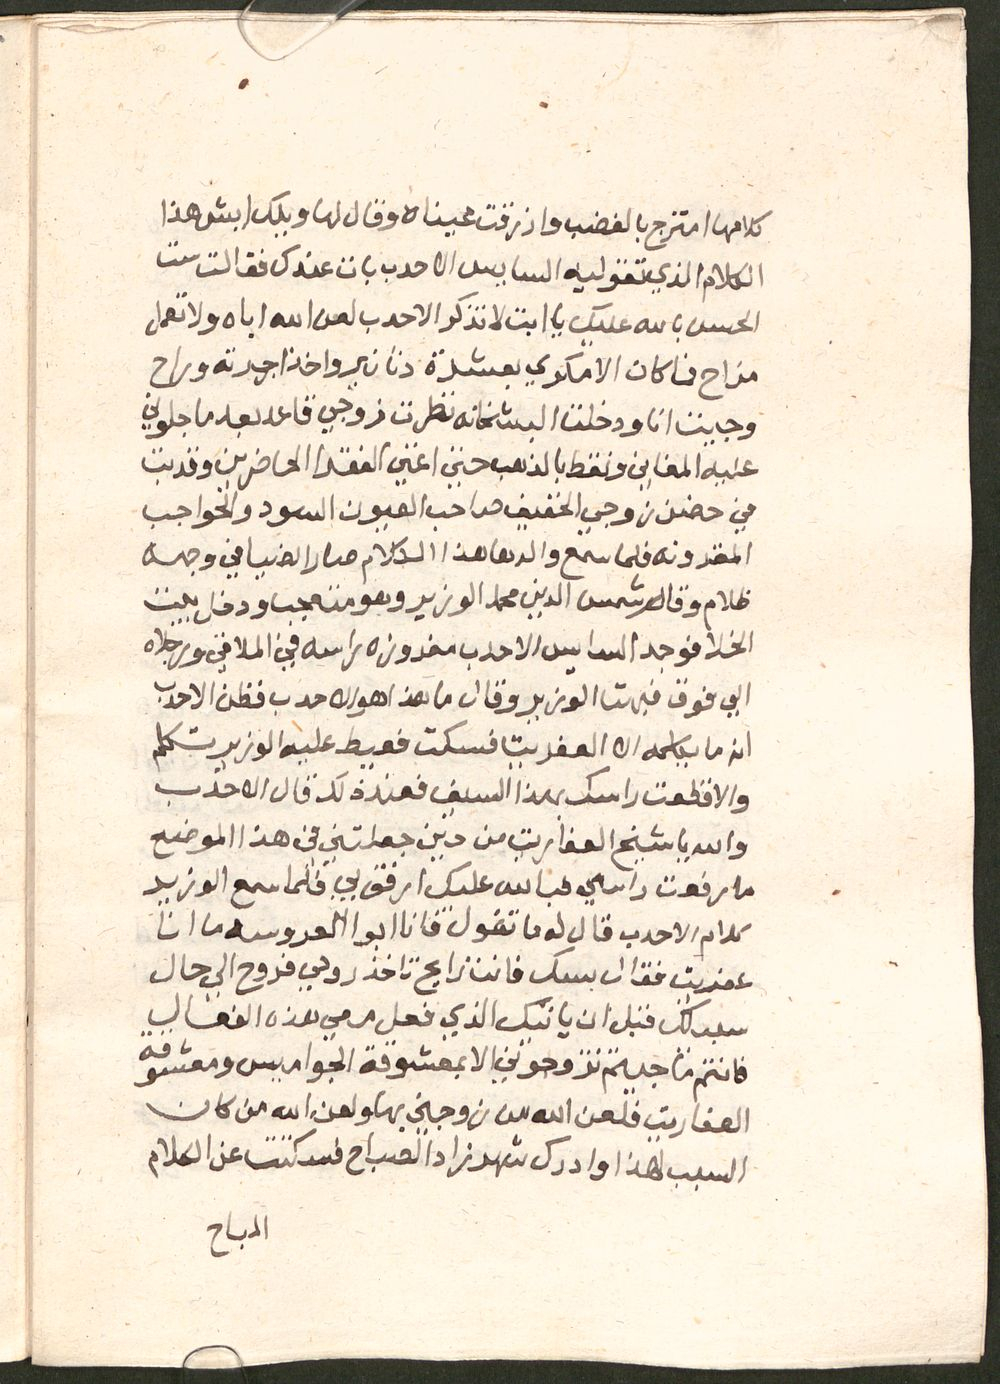 كلامها امتزج بالغضب وازرقت عيناه وقال لها ويلك ايش هذا
الكلام الذي تقوليه السايس الاحدب بات عندك فقالت ست
الحسن بالله عليك يا ابت لا تذكر الاحدب لعن الله اباه ولا تعمل
مزاح فما كان الا مكري بعشرة دنانير واخذ اجرته وراح
وجيت انا ودخلت البشخانه نظرت زوجي قاعد بعد ما جلوني
عليه المغاني ونقط بالذهب حتي اغني الفقرا الحاضرين وقد بت
في حضن زوجي الخفيف صاحب العيون السود والحواجب
المقرونه فلما سمع والدها هذا الكلام صار الضيا في وجهه
ظلام وقال شمس الدين محمد الوزير وهو متعجب ودخل بيت
الخلا فوجد السايس الاحدب مغروزه راسه في الملاقي ورجلاه
الي فوق فبهت الوزير وقال ما هذا هو الاحدب فظن الاحدب
انه ما يكلمه الا العفريت فسكت فعيط عليه الوزير تتكلم
والا قطعت راسك بهذا السيف فعند ذلك قال الاحدب
والله يا شيخ العفاريت من حين جعلتني في هذا الموضع
ما رفعت راسي فبالله عليك ارفق بي فلما سمع الوزير
كلام الاحدب قال له ما تقول فانا ابو العروسه ما انا
عفريت فقال بسك فانت رايح تاخذ روحي فروح الي حال
سبيلك قبل ان ياتيك الذي فعل معي هذه الفعال
فانتم ما جيتم تزوجوني الا بمعشوقة الجواميس ومعشوقة
العفاريت فلعن الله من زوجني بها ولعن الله من كان
السبب لهذا وادرك شهرزاد الصباح فسكتت عن الكلام
المباح